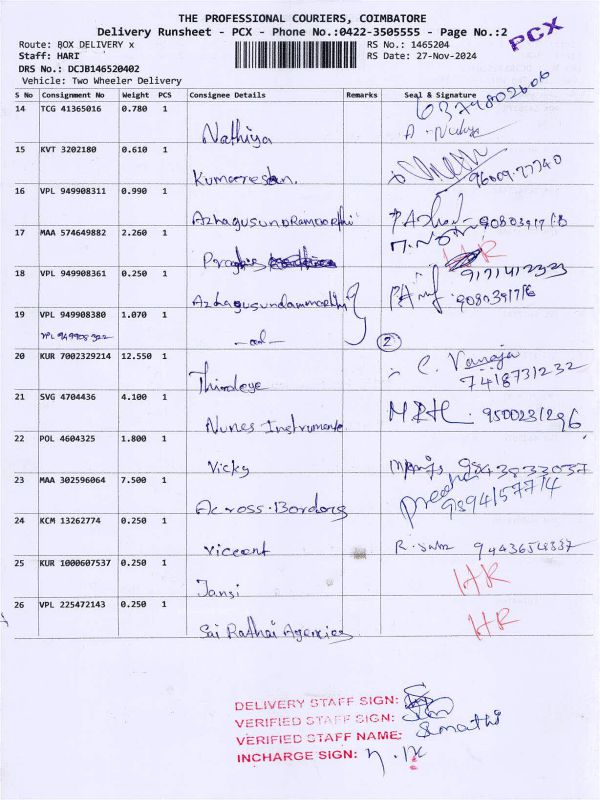 THE PROFESSIONAL COURIERS, COIMBATORE
Delivery Runsheet - PCX - Phone No.:0422-3505555 - Page No.:2
PCX
Route: BOX DELIVERY x
RS No.: 1465204
Staff: HARI
RS Date: 27-Nov-2024
DRS No.: DCJB146520402
Vehicle: Two Wheeler Delivery
S No Consignment No Weight PCS Consignee Details Remarks Seal & Signature
14 TCG 41365016 0.780 1
Nathiya
15 KVT 3202180 0.610 1
Kumaresan.
16 VPL 949908311 0.990 1
Azhagusundramoorthi
17 MAA 574649882 2.260 1
HR
18 VPL 949908361 0.250 1
Azhagusundammoorthy
19 VPL 949908380 1.070 1
VPL 949908322
2
20 KUR 7002329214 12.550 1
C. Vanaja
7418731232
21 SVG 4704436 4.100 1
Nunes Instruments
9500231296
22 POL 4604325 1.800 1
Vicky
9843833037
23 MAA 302596064 7.500 1
Across Borders
9894157714
24 KCM 13262774 0.250 1
Viccent
25 KUR 1000607537 0.250 1
HR
Jansi
26 VPL 225472143 0.250 1
HR
Sai Rathai Agencies
DELIVERY STAFF SIGN:
VERIFIED STAFF SIGN:
VERIFIED STAFF NAME: Sumathi
INCHARGE SIGN: